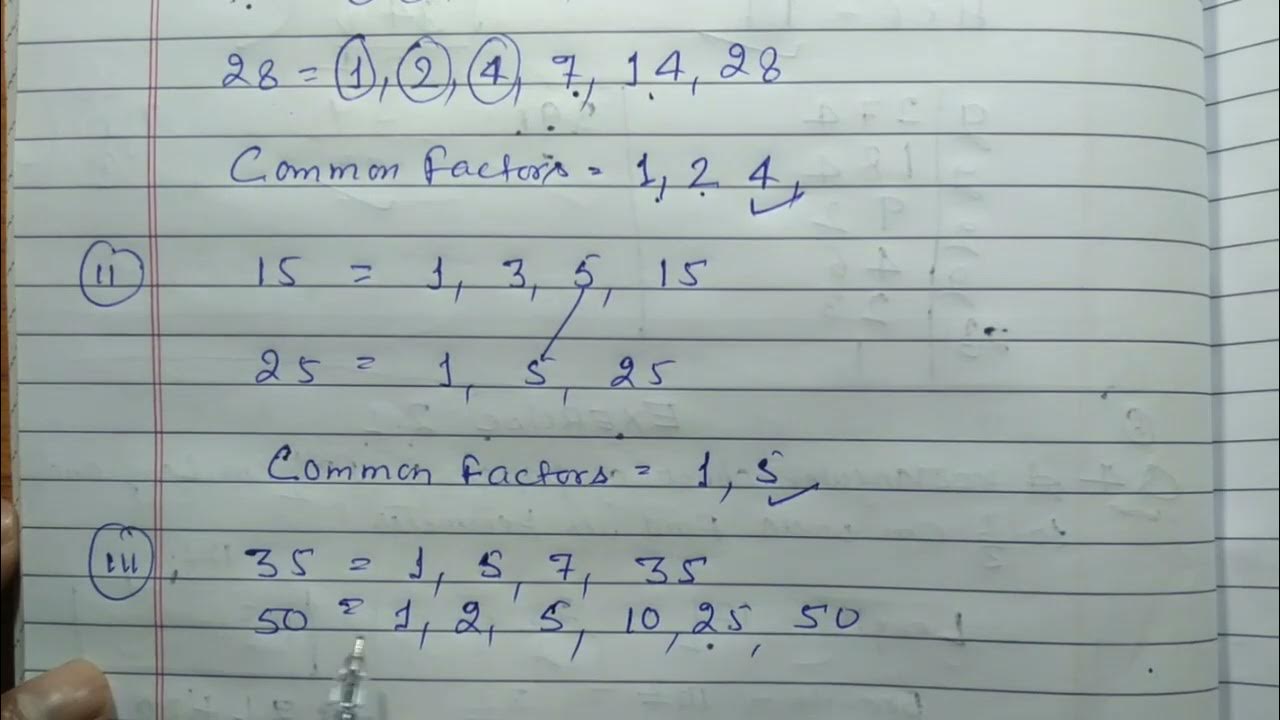 28 = 1, 2, 4, 7, 14, 28
Common factors = 1, 2 4,
ii 15 = 1, 3, 5, 15
25 = 1, 5, 25
Common factors = 1, 5
iii, 35 = 1, 5, 7, 35
50 = 1, 2, 5, 10, 25, 50